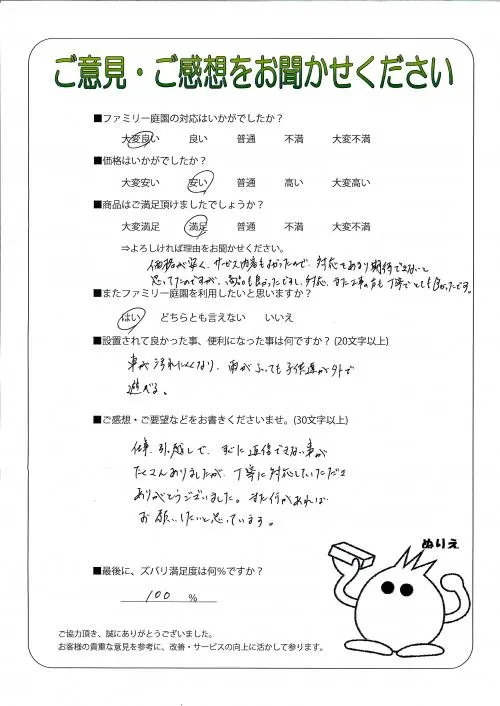 ご意見・ご感想をお聞かせください
■ファミリー庭園の対応はいかがでしたか？
大変良い 良い 普通 不満 大変不満
■価格はいかがでしたか？
大変安い 安い 普通 高い 大変高い
■商品はご満足頂けましたでしょうか？
大変満足 満足 普通 不満 大変不満
⇒よろしければ理由をお聞かせください。
価格が安く、サービス内容もよかったので、対応はあまり期待できないと
思ってたのですが、商品も良かったですし、対応、また工事の方も丁寧でとても良かったです。
■またファミリー庭園を利用したいと思いますか？
はい どちらとも言えない いいえ
■設置されて良かった事、便利になった事は何ですか？(20文字以上)
車が汚れにくくなり、雨がふっても子供達が外で
遊べる。
■ご感想・ご要望などをお書きくださいませ。(30文字以上)
仕事、引越しで、すぐに返信できない事が
たくさんありましたが、丁寧に対応していただき
ありがとうございました。また何かあれば
お願いしたいと思っています。
ぬりえ
■最後に、ズバリ満足度は何%ですか？
100 %
ご協力頂き、誠にありがとうございました。
お客様の貴重な意見を参考に、改善・サービスの向上に活かして参ります。